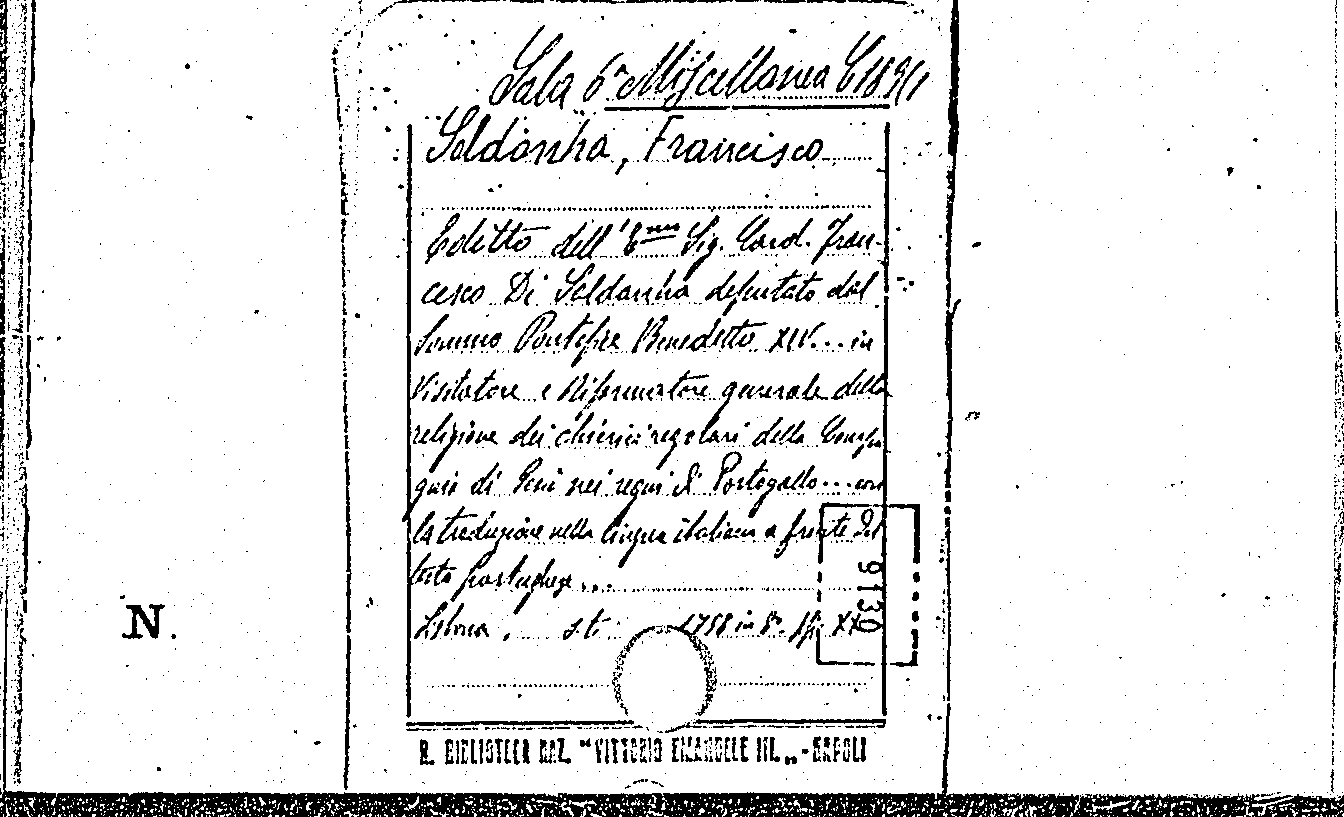 Sala 6ª Miscellanea
Saldanha, Francisco
Editto dell' Emo Sig. Card. Fran-
cesco Di Saldanha deputato dal
Sommo Pontefice Benedetto XIV... in
Visitatore e Riformatore generale della
religione dei chierici regolari della Compa
gnia di Gesù nei regni di Portogallo... con
la traduzione nella lingua italiana a fronte del
testo portoghese...
Lisbona, s.t. 1758 in 8º. pp. XX
9130
N.
R. BIBLIOTECA NAZ. "VITTORIO EMANUELE III.„ - NAPOLI